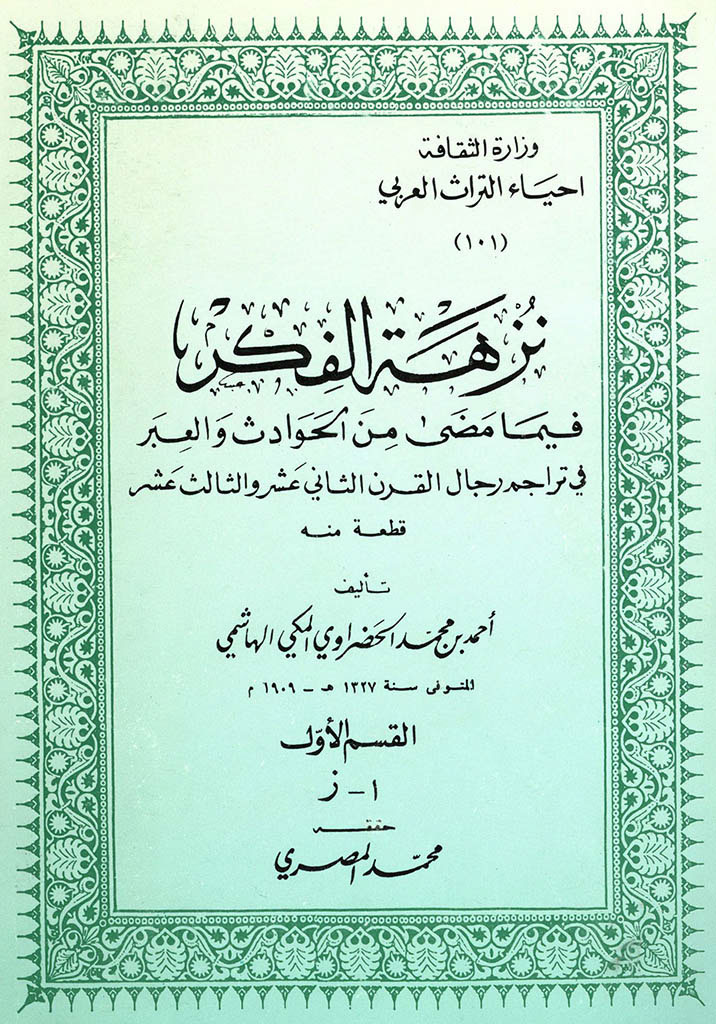 وزارة الثقافة
احياء التراث العربي
(١٠١)
نُزهَة الفِكر
فيمَا مَضَىٰ مِنَ الحَوَادث وَالعِبَر
في تراجم رجال القرن الثاني عَشر والثالث عَشر
قطعة منه
تأليف
أحمد بن محمّد الحَضراوي المكي الهاشمي
المتوفى سنة ١٣٢٧ هـ - ١٩٠٩ م
القسم الأوّل
ا - ز
حققه
محمّد المصري